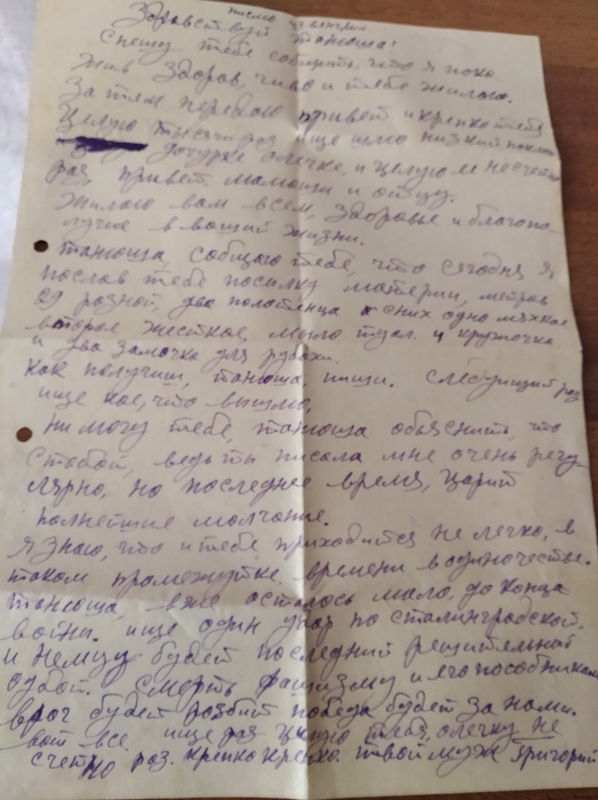 писмо из венгрии
Здравствуй танюша!
Спешу тебе собщить, что я пока
жив здоров, чиво и тебе жилаю.
За тем передаю привет и крепко тебя
Целую тысячи раз, ище шлю низкий поклон
дочурке олечке. и целую ее несчетно
раз, привет. мамоши и отцу.
жилаю вам всем, здоровье и благопа
лучие в вашей жизни.
танюша, собщаю тебе, что сегодня я,
послав тебе посылку материи, метров
29 разной, два полотенца с них одно мяхкое
второе жесткое, мыло туал. и кружочка
и два замочка для рубахи.
Как получиш, танюша. пиши. следующий раз
ище кое, что вышлю.
ни могу тебе, танюша объяснить, что
стобой, ведь ты писала мне очень регу-
лярно, но последнее время, царит
полнейшие молчание.
я знаю, что и тебе приходится не легко, в
таком промежутке. времени в одиночестве.
танюша, вже осталось мало, до конца
войны. ище один удар по сталинградской.
и немцу будет последний решительной
отбой. Смерть фашизму и его пособникам
враг будет розбит победа будет за нами.
вот все. ище раз целую тебя, олечку не
счетно раз. крепко крепко. твой муж григорий